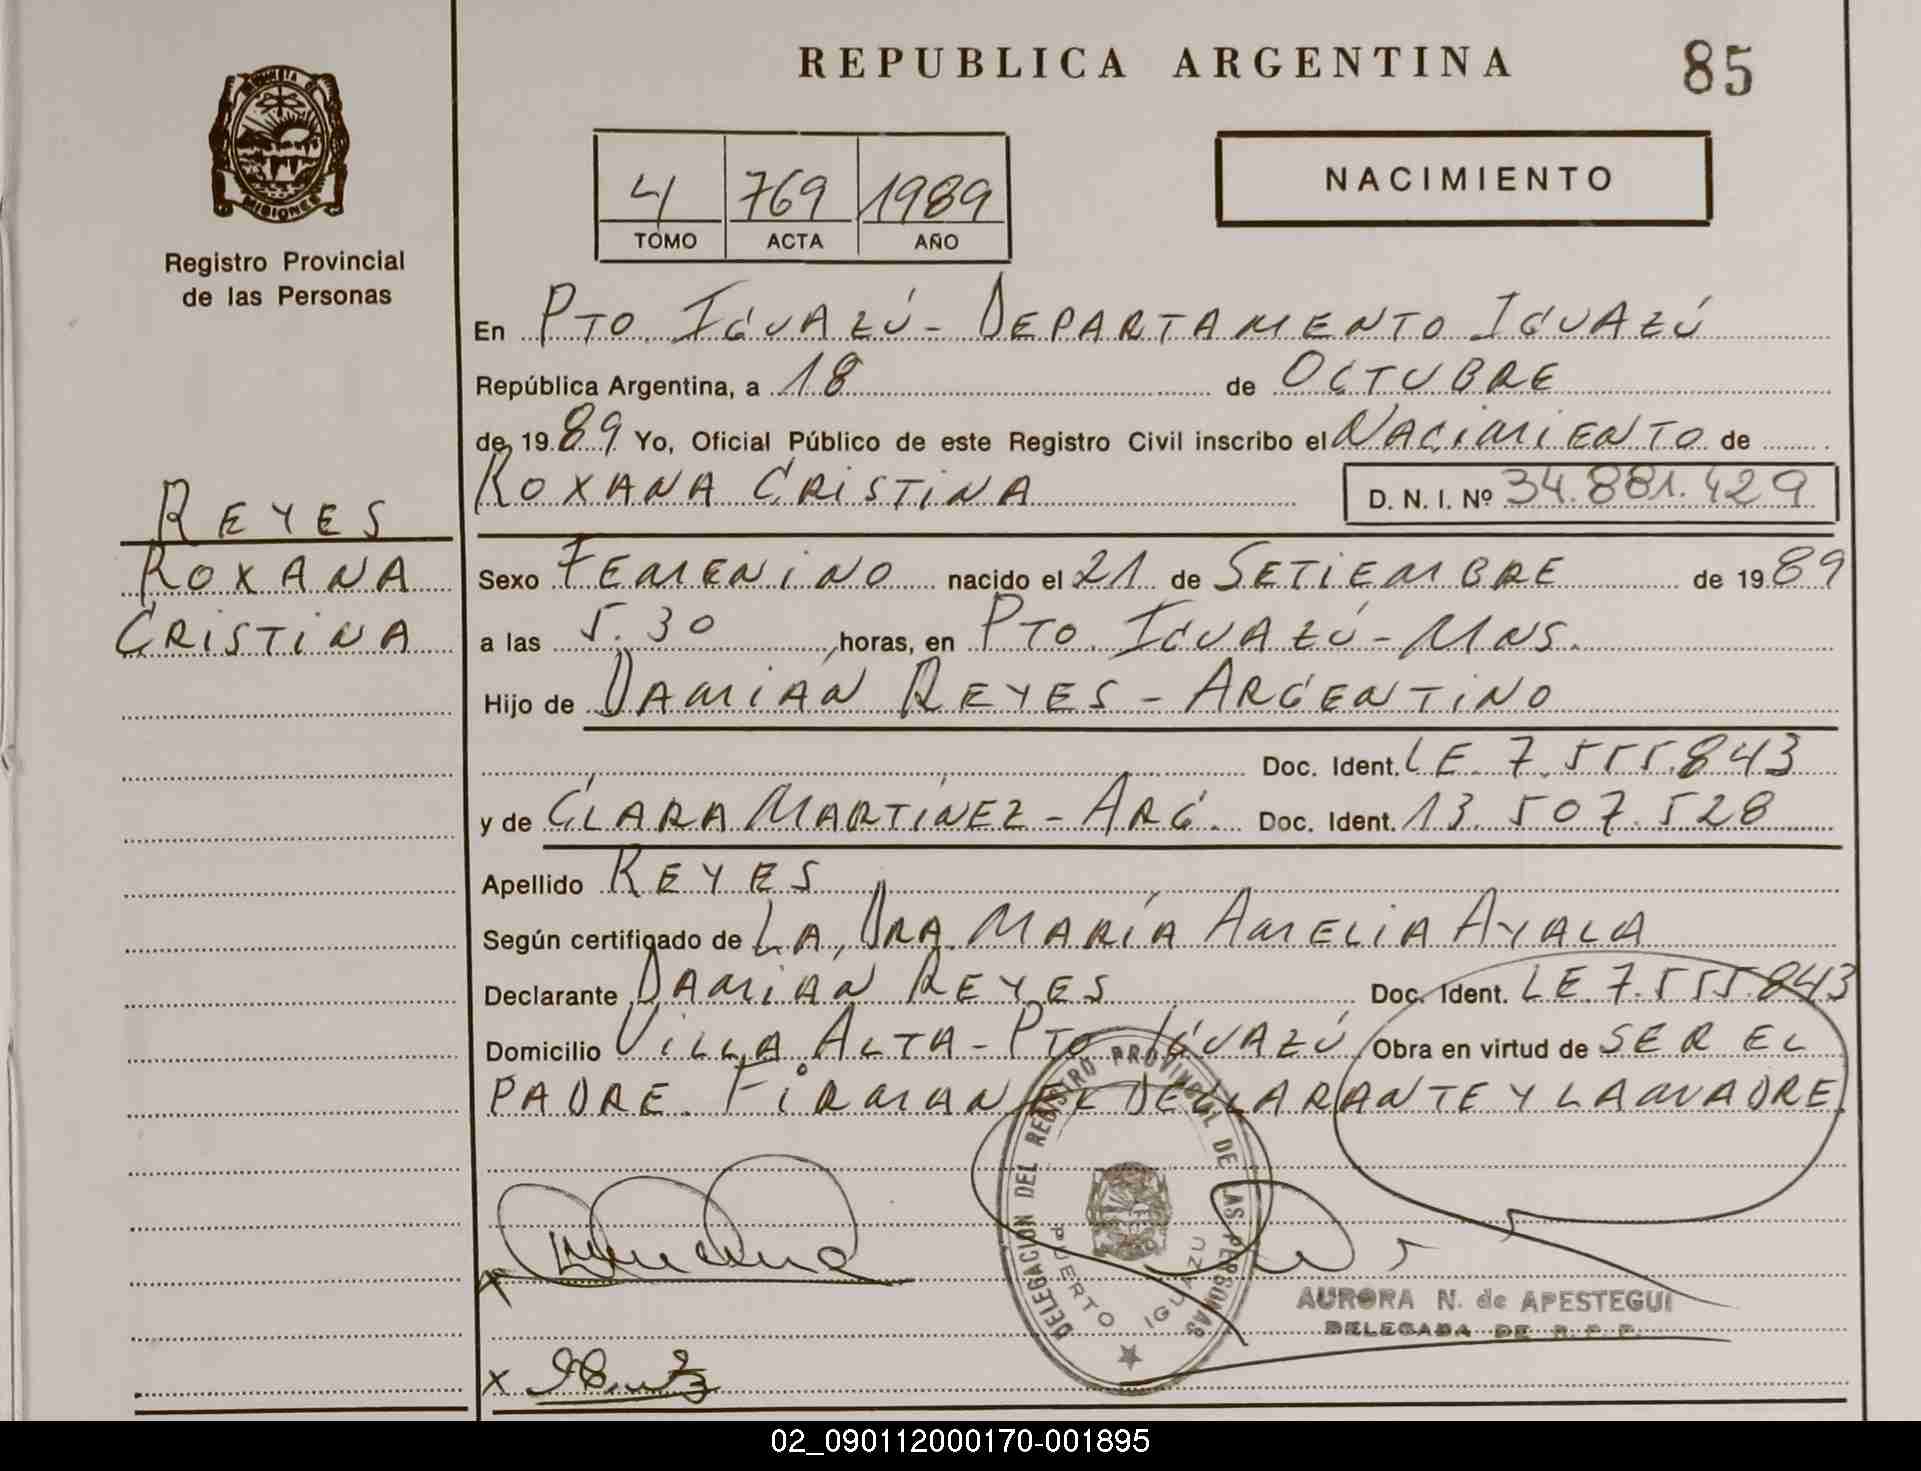 REPUBLICA ARGENTINA
85
MISIONES
Registro Provincial
de las Personas
4 769 1989
TOMO ACTA AÑO
NACIMIENTO
REYES
ROXANA
CRISTINA
En PTO. IGUAZÚ - DEPARTAMENTO IGUAZÚ
República Argentina, a 18 de OCTUBRE
de 1989 Yo, Oficial Público de este Registro Civil inscribo el NACIMIENTO de
ROXANA CRISTINA D. N. I. Nº 34.881.429
Sexo FEMENINO nacido el 21 de SETIEMBRE de 1989
a las 5.30 horas, en PTO. IGUAZÚ - MNS.
Hijo de DAMIÁN REYES - ARGENTINO
Doc. Ident. LE. 7.555.843
y de CLARA MARTINEZ - ARG. Doc. Ident. 13.507.528
Apellido REYES
Según certificado de LA DRA. MARÍA AMELIA AYALA
Declarante DAMIÁN REYES Doc. Ident. LE. 7.555.843
Domicilio VILLA ALTA - PTO IGUAZÚ Obra en virtud de SER EL
PADRE. FIRMAN EL DECLARANTE Y LA MADRE.
DELEGACION DEL REGISTRO PROVINCIAL DE LAS PERSONAS
PUERTO IGUAZU
AURORA N. de APESTEGUI
DELEGADA DE R. P. P.
X
X
02_090112000170-001895